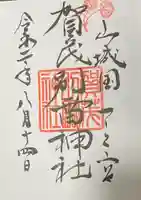 山城国一之宮
賀茂別雷神社
令和二年八月十四日